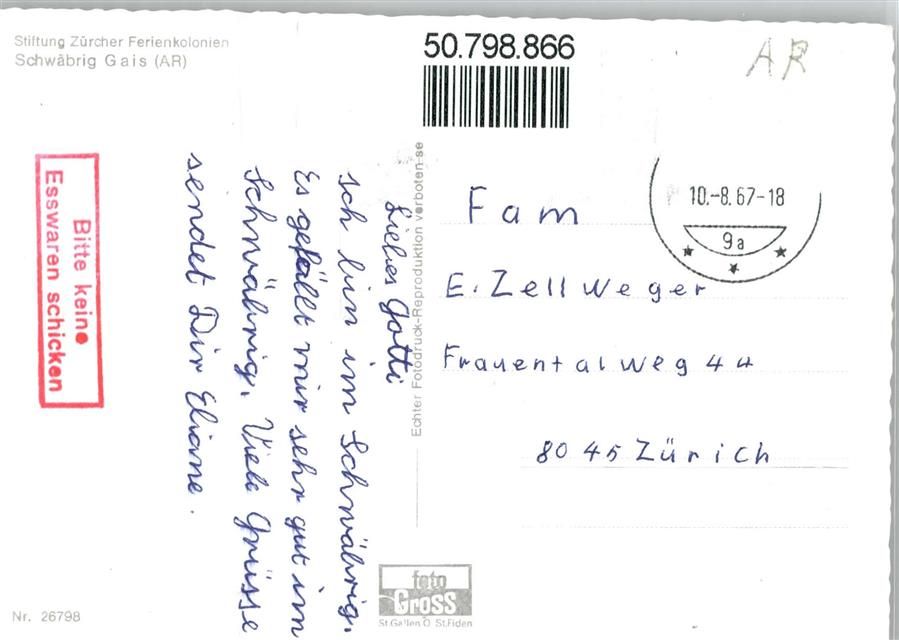 Stiftung Zürcher Ferienkolonien
Schwäbrig Gais (AR)
50.798.866
AR
Bitte keine
Esswaren schicken
Liebes Gotti
Ich bin im Schwäbrig.
Es gefällt mir sehr gut im
Schwäbrig. Viele Grüsse
sendet Dir Eliane.
Echter Fotodruck-Reproduktion verboten-se
10.-8.67-18
9a
Fam
E. Zellweger
Frauentalweg 44
8045 Zürich
foto
Gross
St.Gallen O St.Fiden
Nr. 26798